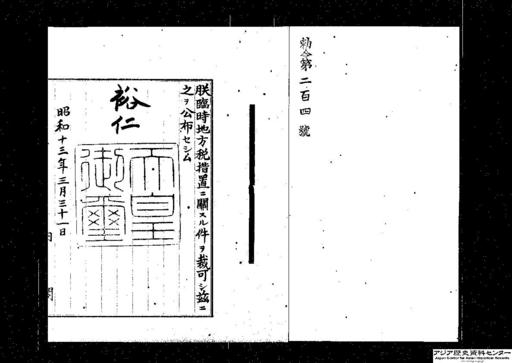 勅令第二百四號
朕臨時地方税措置ニ關スル件ヲ裁可シ茲ニ
之ヲ公布セシム
裕仁
天皇御璽
昭和十三年三月三十一日
内閣
アジア歴史資料センター
Japan Center for Asian Historical Records